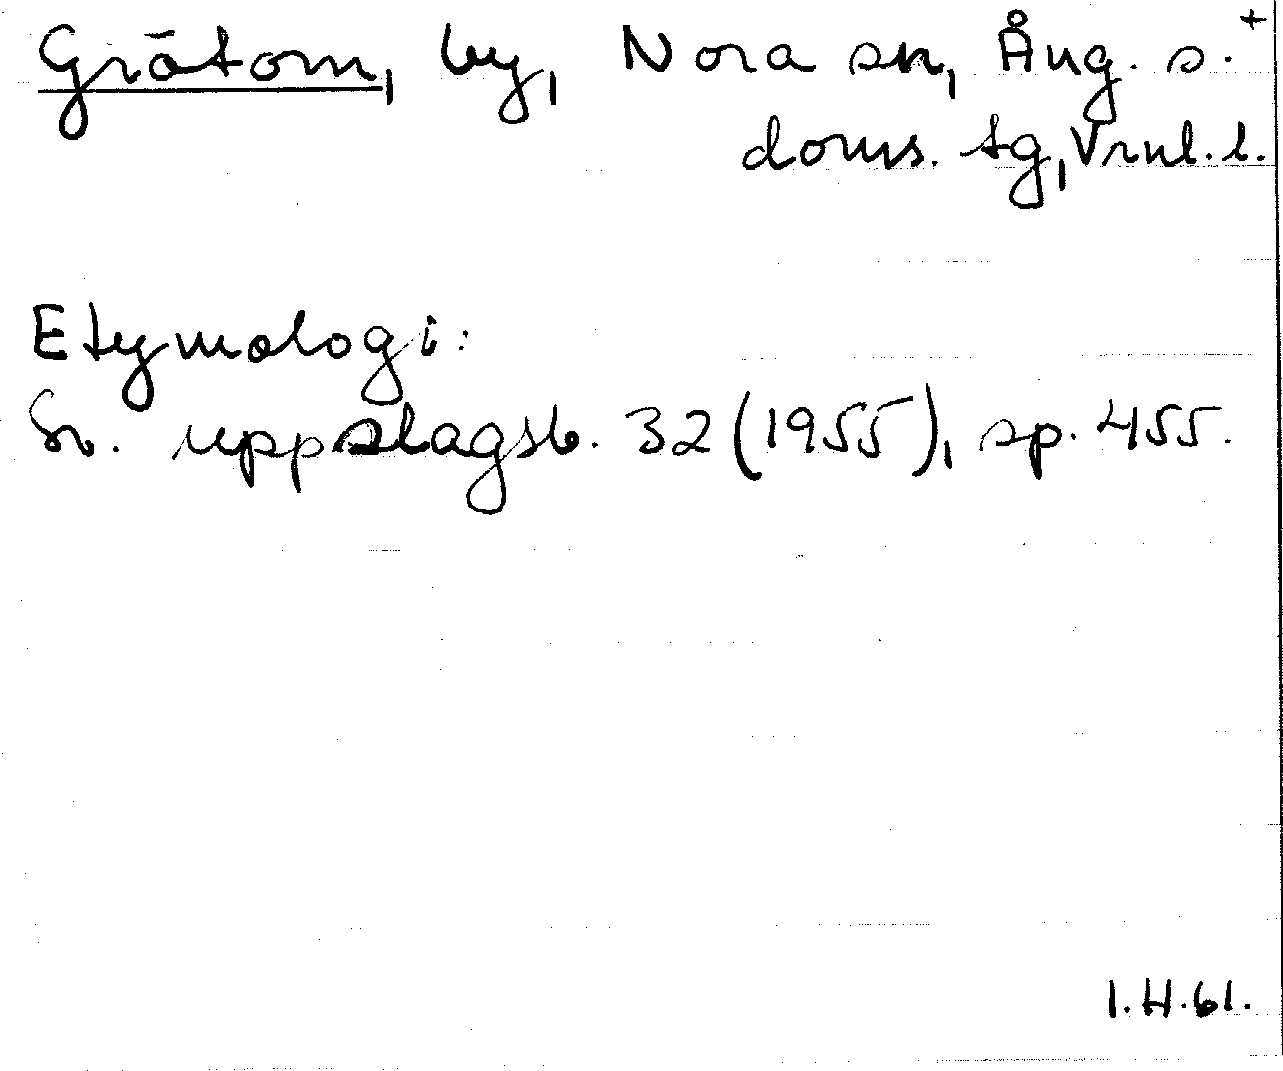 Grätom, by, Nora sn, Ång. s. +
doms. tg, Vrnl. l.
Etymologi:
Sv. uppslagsb. 32 (1955), sp. 455.
I.H.61.